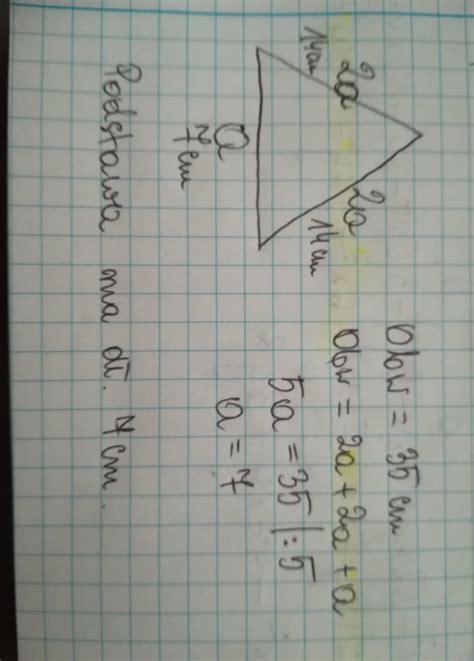 2a
14cm
2a
14cm
a
7cm
Obw = 35 cm
Obw = 2a + 2a + a
5a = 35 |:5
a = 7
Podstawa ma dł. 7cm.